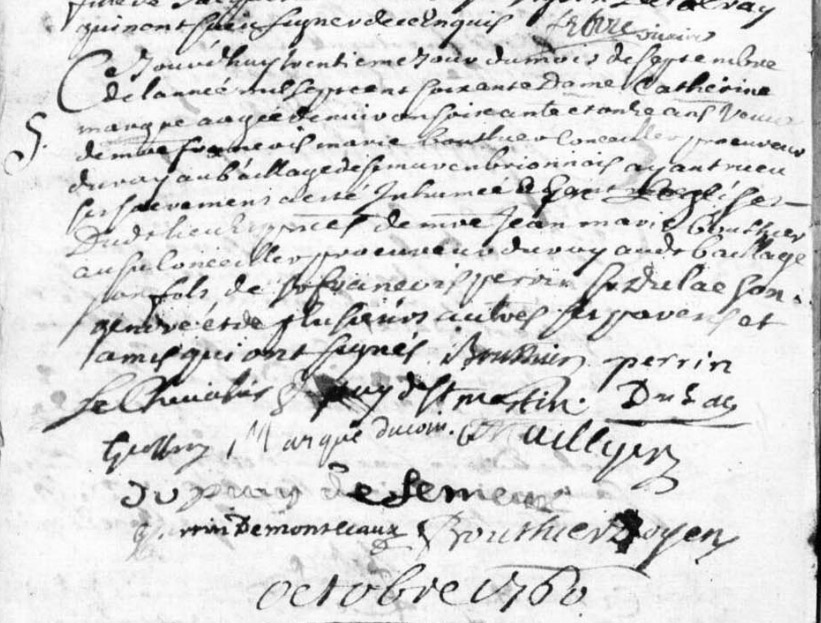 qui n'ont sceu signer de ce enquis
vicaire
Ce Jourdhuy vintieme Jour du mois de Septembre
de lannée mil sept cent soixante Dame Catherine
marque aagée d'environ soixante et onze ans veuve
S.
de mre francois marie bouthier Conceiller procureur
du roy au bailliage de Semur en brionnois ayant receu
ses sacremens a esté Inhumée
Dud. lieu de mre Jean marie bouthier
aussi Conceiller procureur du roy aud. bailliage
son fils, de Sr francois perrin Sr Dulac son
gendre et de plusieurs autres ses parens et
amis qui ont signés. Bouthier perrin
Le Chevalier puy de St martin. Dulac
Marque ducoin.
Dupuy de Semeur
perrin Demontceaux Bouthier Doyen
octobre 1760